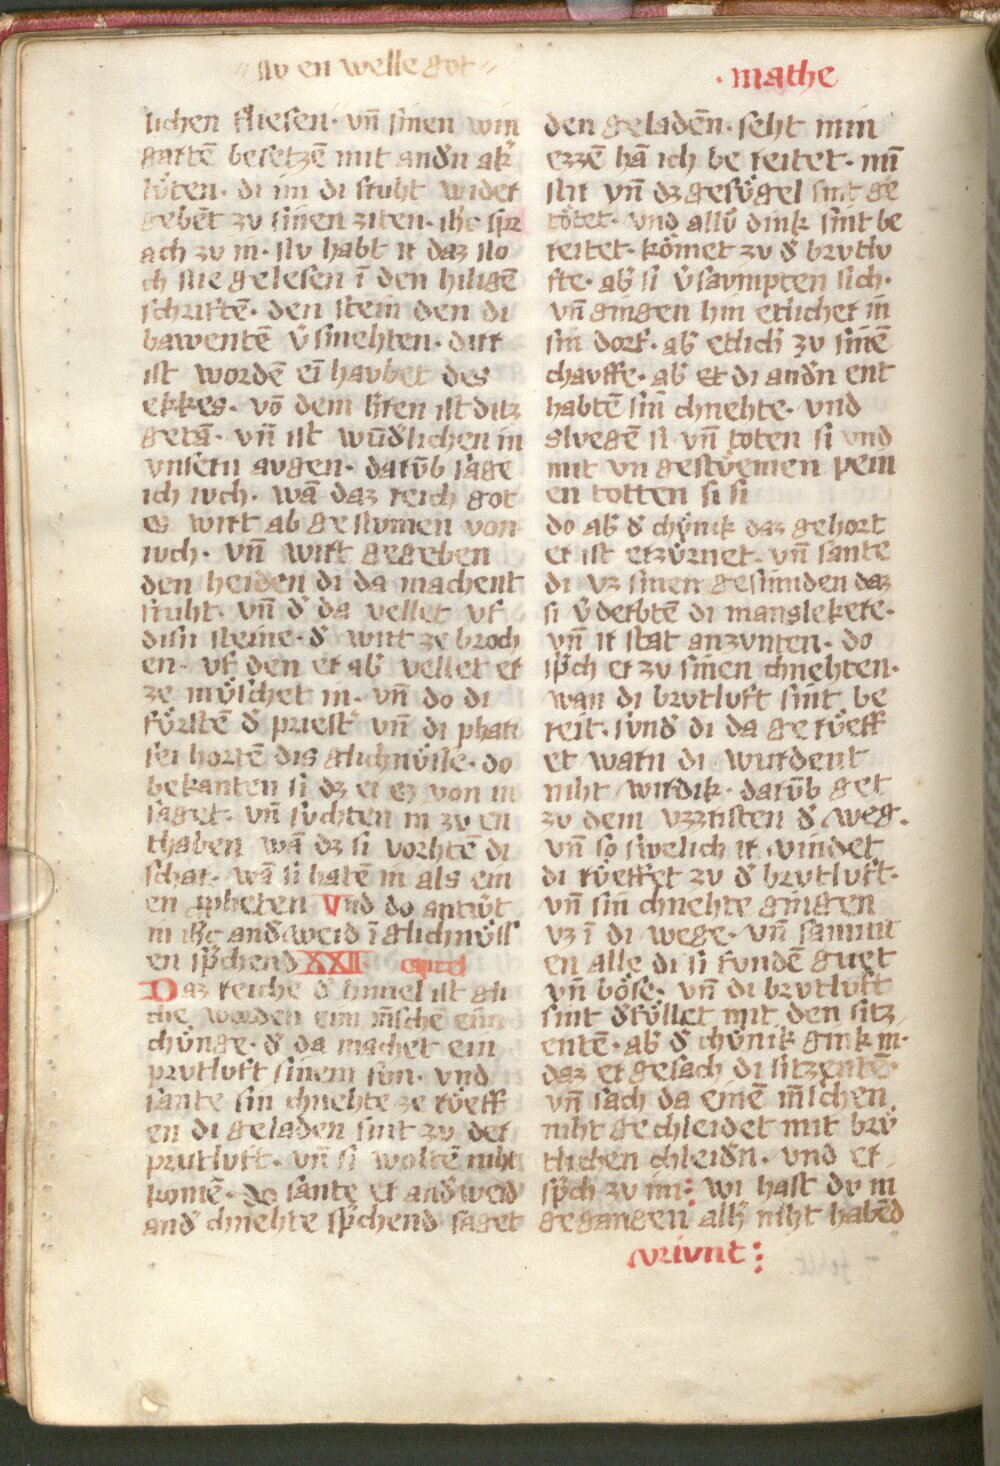 nv en welle got
· mathe
lichen fliesen · vn̄ sinen win
gartē besetzē mit and̾n ak͛
lv̊ten · di im di fruht wider
gebēt zv sinen ziten · ih̄c sp͛r
ach zv in · nv habt ir daz no
ch nie gelesen ī den hiligē
schriftē · den stein den di
bawentē v̾smehten · dirr
ist wordē eī havbet des
ekkes · vō dem h̾ren ist ditz
getā · vn̄ ist wūd̾lichen in
vnsern avgen · darv̄b sage
ich ivch · wā daz reich got
es wirt ab genvmen von
ivch · vn̄ wirt gegeben
den heiden di da machent
fruht · vn̄ d̾ da vellet vf
disn steine · d̾ wirt ze broch
en · vf den er ab̾ vellet er
ze mv̊schet in · vn̄ do di
fv̊rstē d̾ priest̾ vn̄ di phari
sei hortē dis glichnv̊sse · do
bekanten si dz er ez von in
saget · vn̄ svchten in zv en
thaben wā dz si vorhtē di
schar · wā si hatē in als ein
en ꝓheten Vnd do antw̾t
in ih̄c and̾weid ī glichnv̊ss
en sp͛chend XXII capitel
Daz reiche d̾ himel ist gli
che worden eim m̄schē eīm
chv̊nge · d̾ da machet ein
prvtlvft sinem svn · vnd
sante sin chnehte ze rv̊eff
en di geladen sint zv der
prvtlvft · vn̄ si woltē niht
komē · do sante er and̾weid
and̾ chnehte sp͛chend · saget
den geladēn · seht min
ezzē hā ich be reitet · mī
stir vn̄ dz gefv̊gel sint ge
tötet · vnd allv̊ dink sint be
reitet · kömet zv d̾ brvtlv
fte · ab̾ si v̾savmpten sich ·
vn̄ gingen hin etlicher in
sin dorf · ab̾ etlich̾ zv sinē
chavffe · ab̾ er di and̾n ent
habtē sin̄ chnehte · vnd
slvegē si vn̄ toten si vnd
mit vn gestv̊emen pein
en totten si si
do ab̾ d̾ chv̊nik daz gehort
er ist erzv̊rnet · vn̄ sante
di vz sinen gesinden daz
si v̾derbtē di manslekere ·
vn̄ ir stat anzvnten · do
sp͛ch er zv sinen chnehten ·
wan di brvtlvft sint be
reit · svnd̾ di da ge rv̊eff
et warn di wurdent
niht wirdik · darv̄b get
zv dem vzzristen d̾ weg ·
vn̄ so swelich ir vindet
di rv̊effet zv d̾ brvtlvft ·
vn̄ sin chnehte gingen
vz ī di wege · vn̄ samnt
en alle di si fvndē guet
vn̄ böse · vn̄ di brvtlvft
sint d̾fv̊llet mit den sitz
entē · ab̾ d̾ chv̊nik gink in ·
daz er gesach di sitzentē ·
vn̄ sach da einē m̄schen
niht gechleidet mit brv̊
tlichen chleid̾n · vnd er
sp͛ch zv im : wi hast dv in
gegangen alh̾ niht habēd
vrivnt :